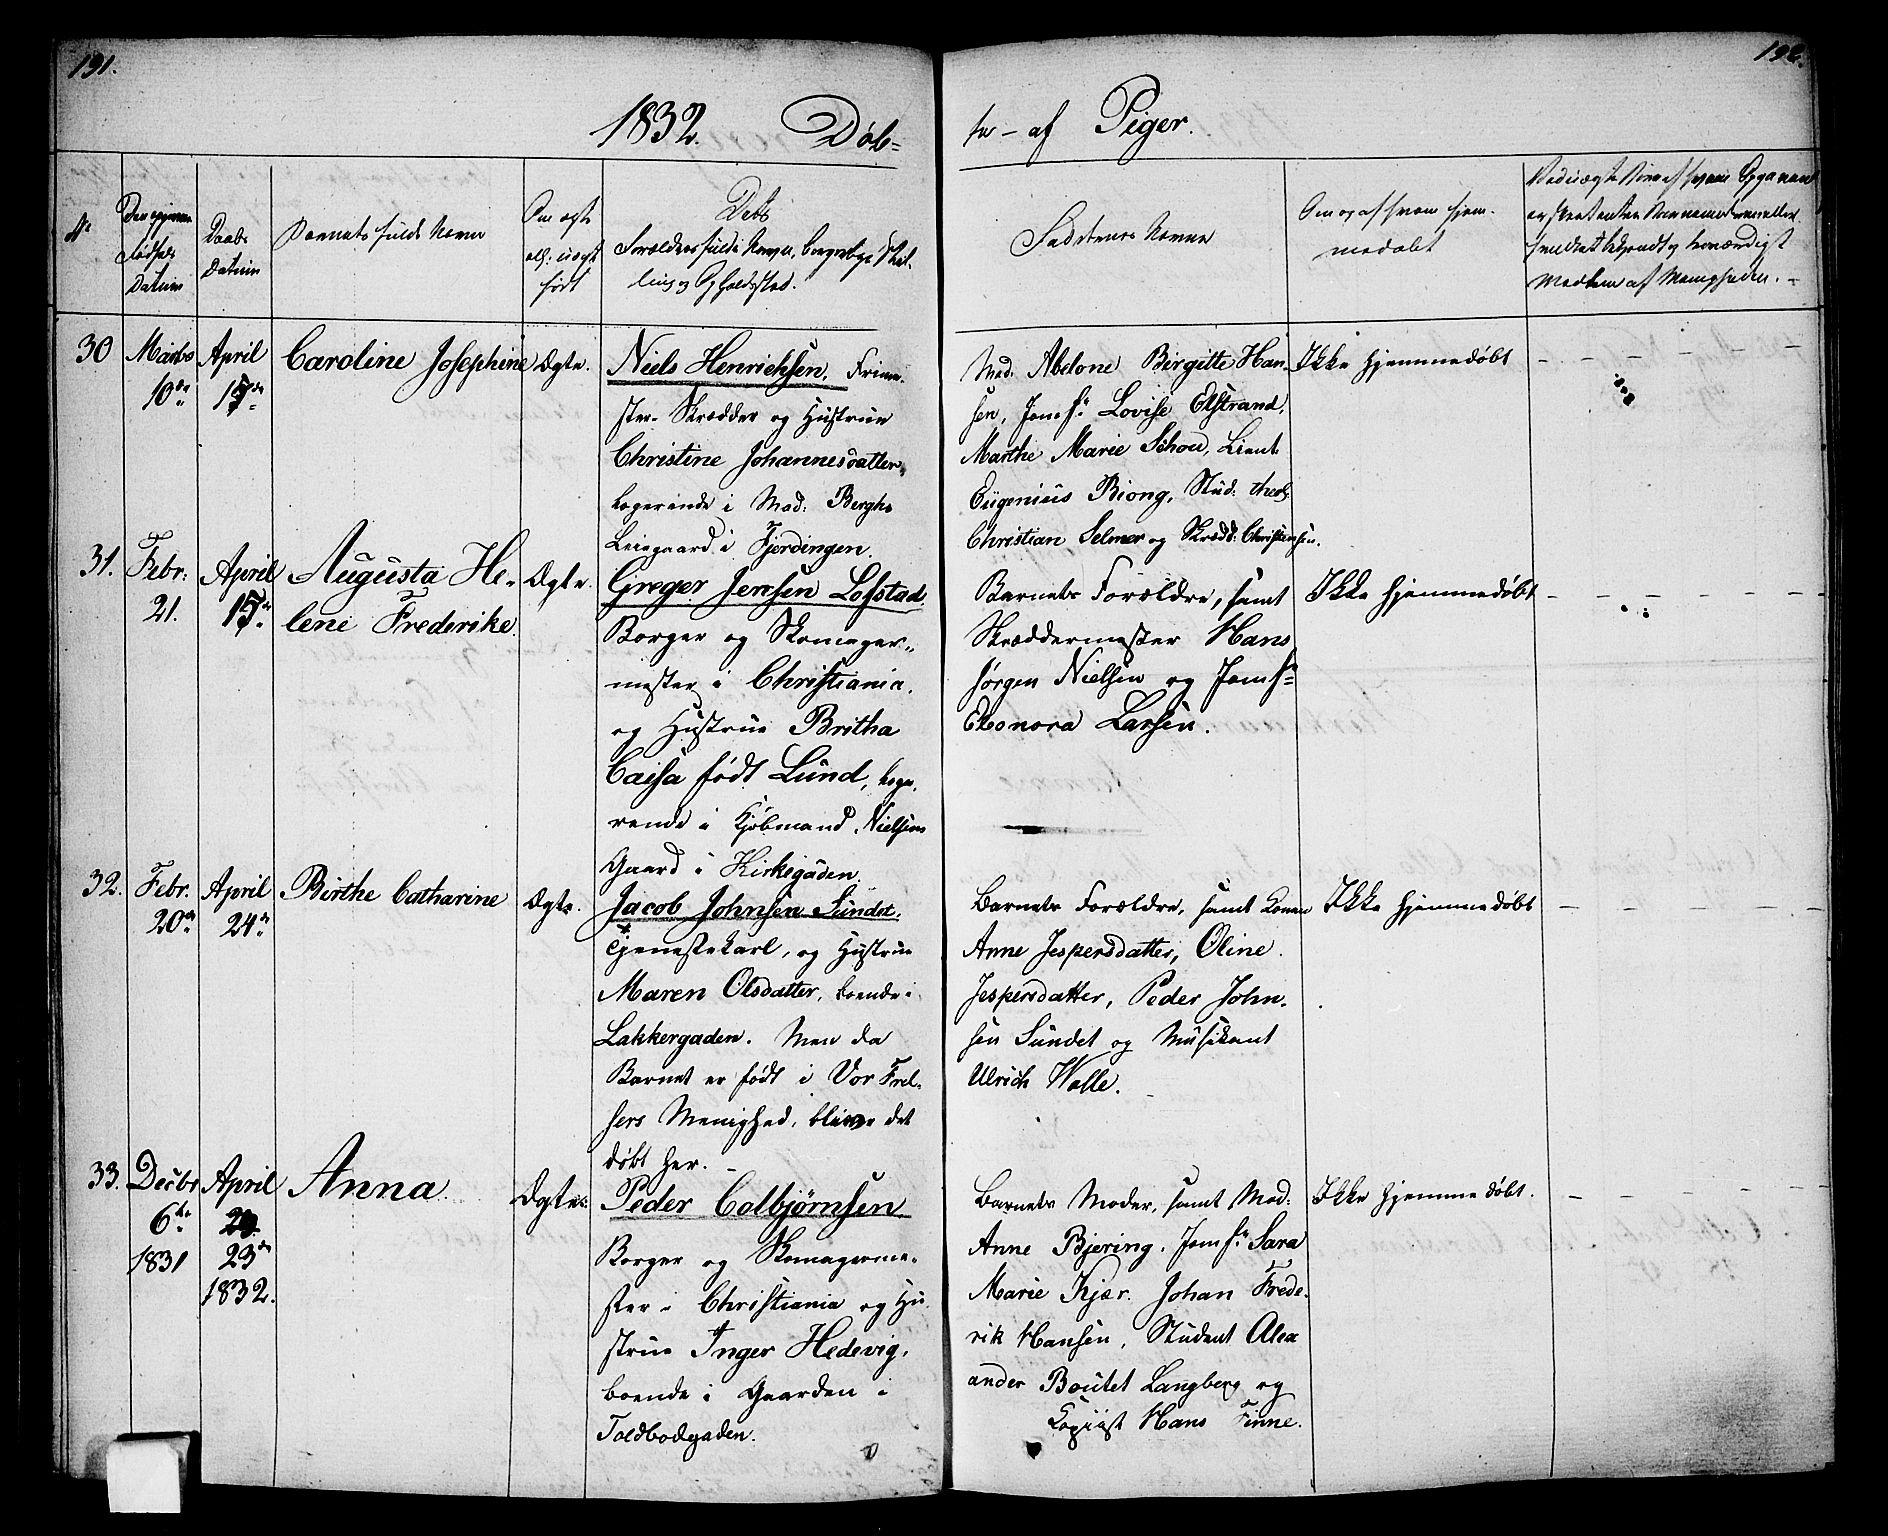 191.
192.
1832. Døb=
te - af Piger.
No
Den opgivne
Fødsels
Datum
Daabs
Datum
Barnets fulde Navn
Om ægte
ell: uægte
født
Dets
Forældres fulde Navn, borgerlige Stil-
ling og Opholdssted.
Faddernes Navne
Om og af hvem hjem-
medøbt
30
Martz
10de
April
15de
Caroline Josephine
Ægte.
Niels Henrichsen, Frime-
ster-Skrædder og Hustrue
Christine Johannesdatter,
logerende i Mad: Berghs
Leiegaard i Fjerdingen.
Mad. Abelone Birgitte Han-
sen, Jomf: Lovise Elstrand,
Marthe Marie Schou, Lieut
Eugenius Biong, Stud: theol:
Christian Selmer og Skrædd: Christensen.
Ikke hjemmedøbt
31.
Febr:
21.
April
15de
Augusta He-
lene Frederike
Ægte.
Greger Jensen Lofstad,
Borger og Skomager-
mester i Christiania,
og Hustrue Britha
Caisa født Lund, loge-
rende i Kjøbmand Nielsens
Gaard i Kirkegaden.
Barnets Forældre, samt
Skræddermester Hans
Jørgen Nielsen og Jomf:
Eleonora Larsen.
Ikke hjemmedøbt
32.
Febr.
20de
April
24de
Birthe Catharine
Ægte.
Jacob Johnsen Sundet,
Tjenestekarl, og Hustrue
Maren Olsdatter, boende i
Lakkergaden. Men da
Barnet er født i Vor Frel-
sers Menighed, bliver det
døbt her.
Barnets Forældre, samt Konen
Anne Jespersdatter, Oline
Jespersdatter, Peder John-
sen Sundet og Musikant
Ulrich Walle.
Ikke hjemmedøbt
33.
Decbr
6te
1831
April
23de
1832.
Anna
Ægte.
Peder Colbjørnsen
Borger og Skomagerme-
ster i Christiania og Hu-
strue Inger Hedevig,
boende i Gaarden i
Toldbodgaden.
Barnets Moder, samt Mad:
Anne Bjering, Jomf: Sara
Marie Kjær. Johan Frede-
rik Hansen, Student Alex
ander Boutet Langberg og
Copiist Hans Finne.
Ikke hjemmedøbt.